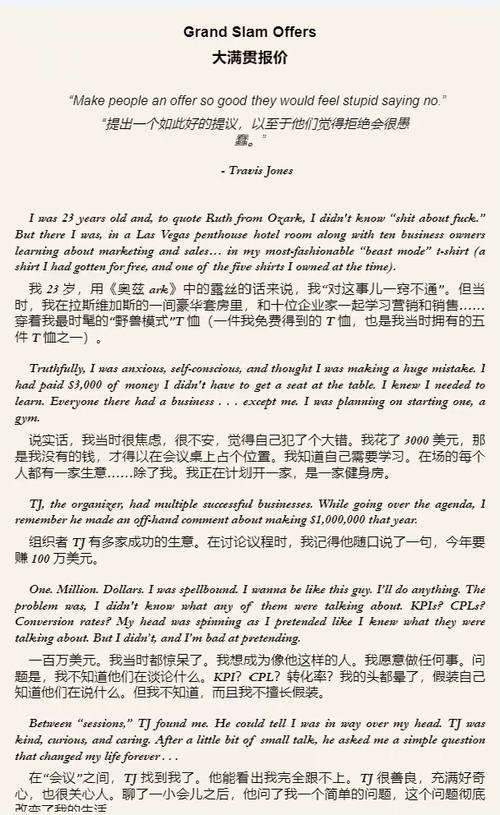 Grand Slam Offers
大满贯报价
“Make people an offer so good they would feel stupid saying no.”
“提出一个如此好的提议，以至于他们觉得拒绝会很愚
蠢。”
- Travis Jones
I was 23 years old and, to quote Ruth from Ozark, I didn't know “shit about fuck.”
But there I was, in a Las Vegas penthouse hotel room along with ten business owners
learning about marketing and sales… in my most-fashionable “beast mode” t-shirt (a
shirt I had gotten for free, and one of the five shirts I owned at the time).
我 23 岁，用《奥兹 ark》中的露丝的话来说，我“对这事儿一窍不通”。但当
时，我在拉斯维加斯的一间豪华套房里，和十位企业家一起学习营销和销售……
穿着我最时髦的“野兽模式”T 恤（一件我免费得到的 T 恤，也是我当时拥有的五
件 T 恤之一）。
Truthfully, I was anxious, self-conscious, and thought I was making a huge mistake. I
had paid $3,000 of money I didn't have to get a seat at the table. I knew I needed to
learn. Everyone there had a business . . . except me. I was planning on starting one, a
gym.
说实话，我当时很焦虑，很不安，觉得自己犯了个大错。我花了 3000 美元，那
是我没有的钱，才得以在会议桌上占个位置。我知道自己需要学习。在场的每个
人都有一家生意……除了我。我正在计划开一家，是一家健身房。
TJ, the organizer, had multiple successful businesses. While going over the agenda, I
remember he made an off-hand comment about making $1,000,000 that year.
组织者 TJ 有多家成功的生意。在讨论议程时，我记得他随口说了一句，今年要
赚 100 万美元。
One. Million. Dollars. I was spellbound. I wanna be like this guy. I'll do anything. The
problem was, I didn't know what any of them were talking about. KPIs? CPLs?
Conversion rates? My head was spinning as I pretended like I knew what they were
talking about. But I didn't, and I'm bad at pretending.
一百万美元。我当时都惊呆了。我想成为像他这样的人。我愿意做任何事。问
题是，我不知道他们在谈论什么。KPI？CPL？转化率？我的头都晕了，假装自己
知道他们在说什么。但我不知道，而且我不擅长假装。
Between “sessions,” TJ found me. He could tell I was in way over my head. TJ was
kind, curious, and caring. After a little bit of small talk, he asked me a simple question
that changed my life forever . . .
在“会议”之间，TJ 找到我了。他能看出我完全跟不上。TJ 很善良，充满好奇
心，也很关心人。聊了一小会儿之后，他问了我一个简单的问题，这个问题彻底
改变了我的生活